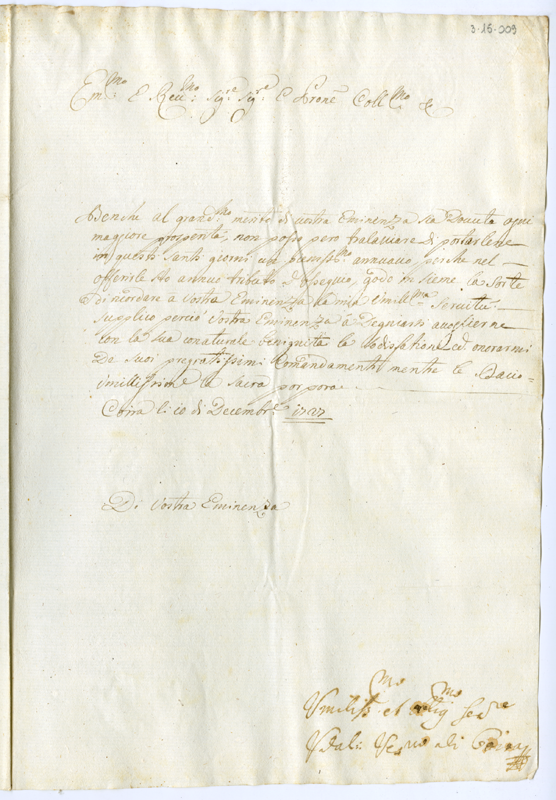 3-15-009
Em:mo E Rev:mo Sig:re Sig:re E Prone Coll:mo
Benche al grand:mo merito di vostra Eminenza sia Dovuta ogni
maggiore prosperità, non posso però tralasciare di portarlene
in questi Santi giorni un annuncio, perche nel
offerirle sto annuo tributo d'ossequio, godo in sieme la Sorte
di ricordare a Vostra Eminenza la mia Umill:ma Servitù.
Supplico perciò Vostra Eminenza à Degniarsi
con la sua conaturale benignità la ed onorarmi
De suoi pregiatissimi Comandamenti mentre le Bacio
Umilissime la Sacra porpora.
Coira li 10 di Decembre 1727
Di Vostra Eminenza
Umiliss:mo et Oblig:mo Ser:re
Vdal: Ves:vo di Coira